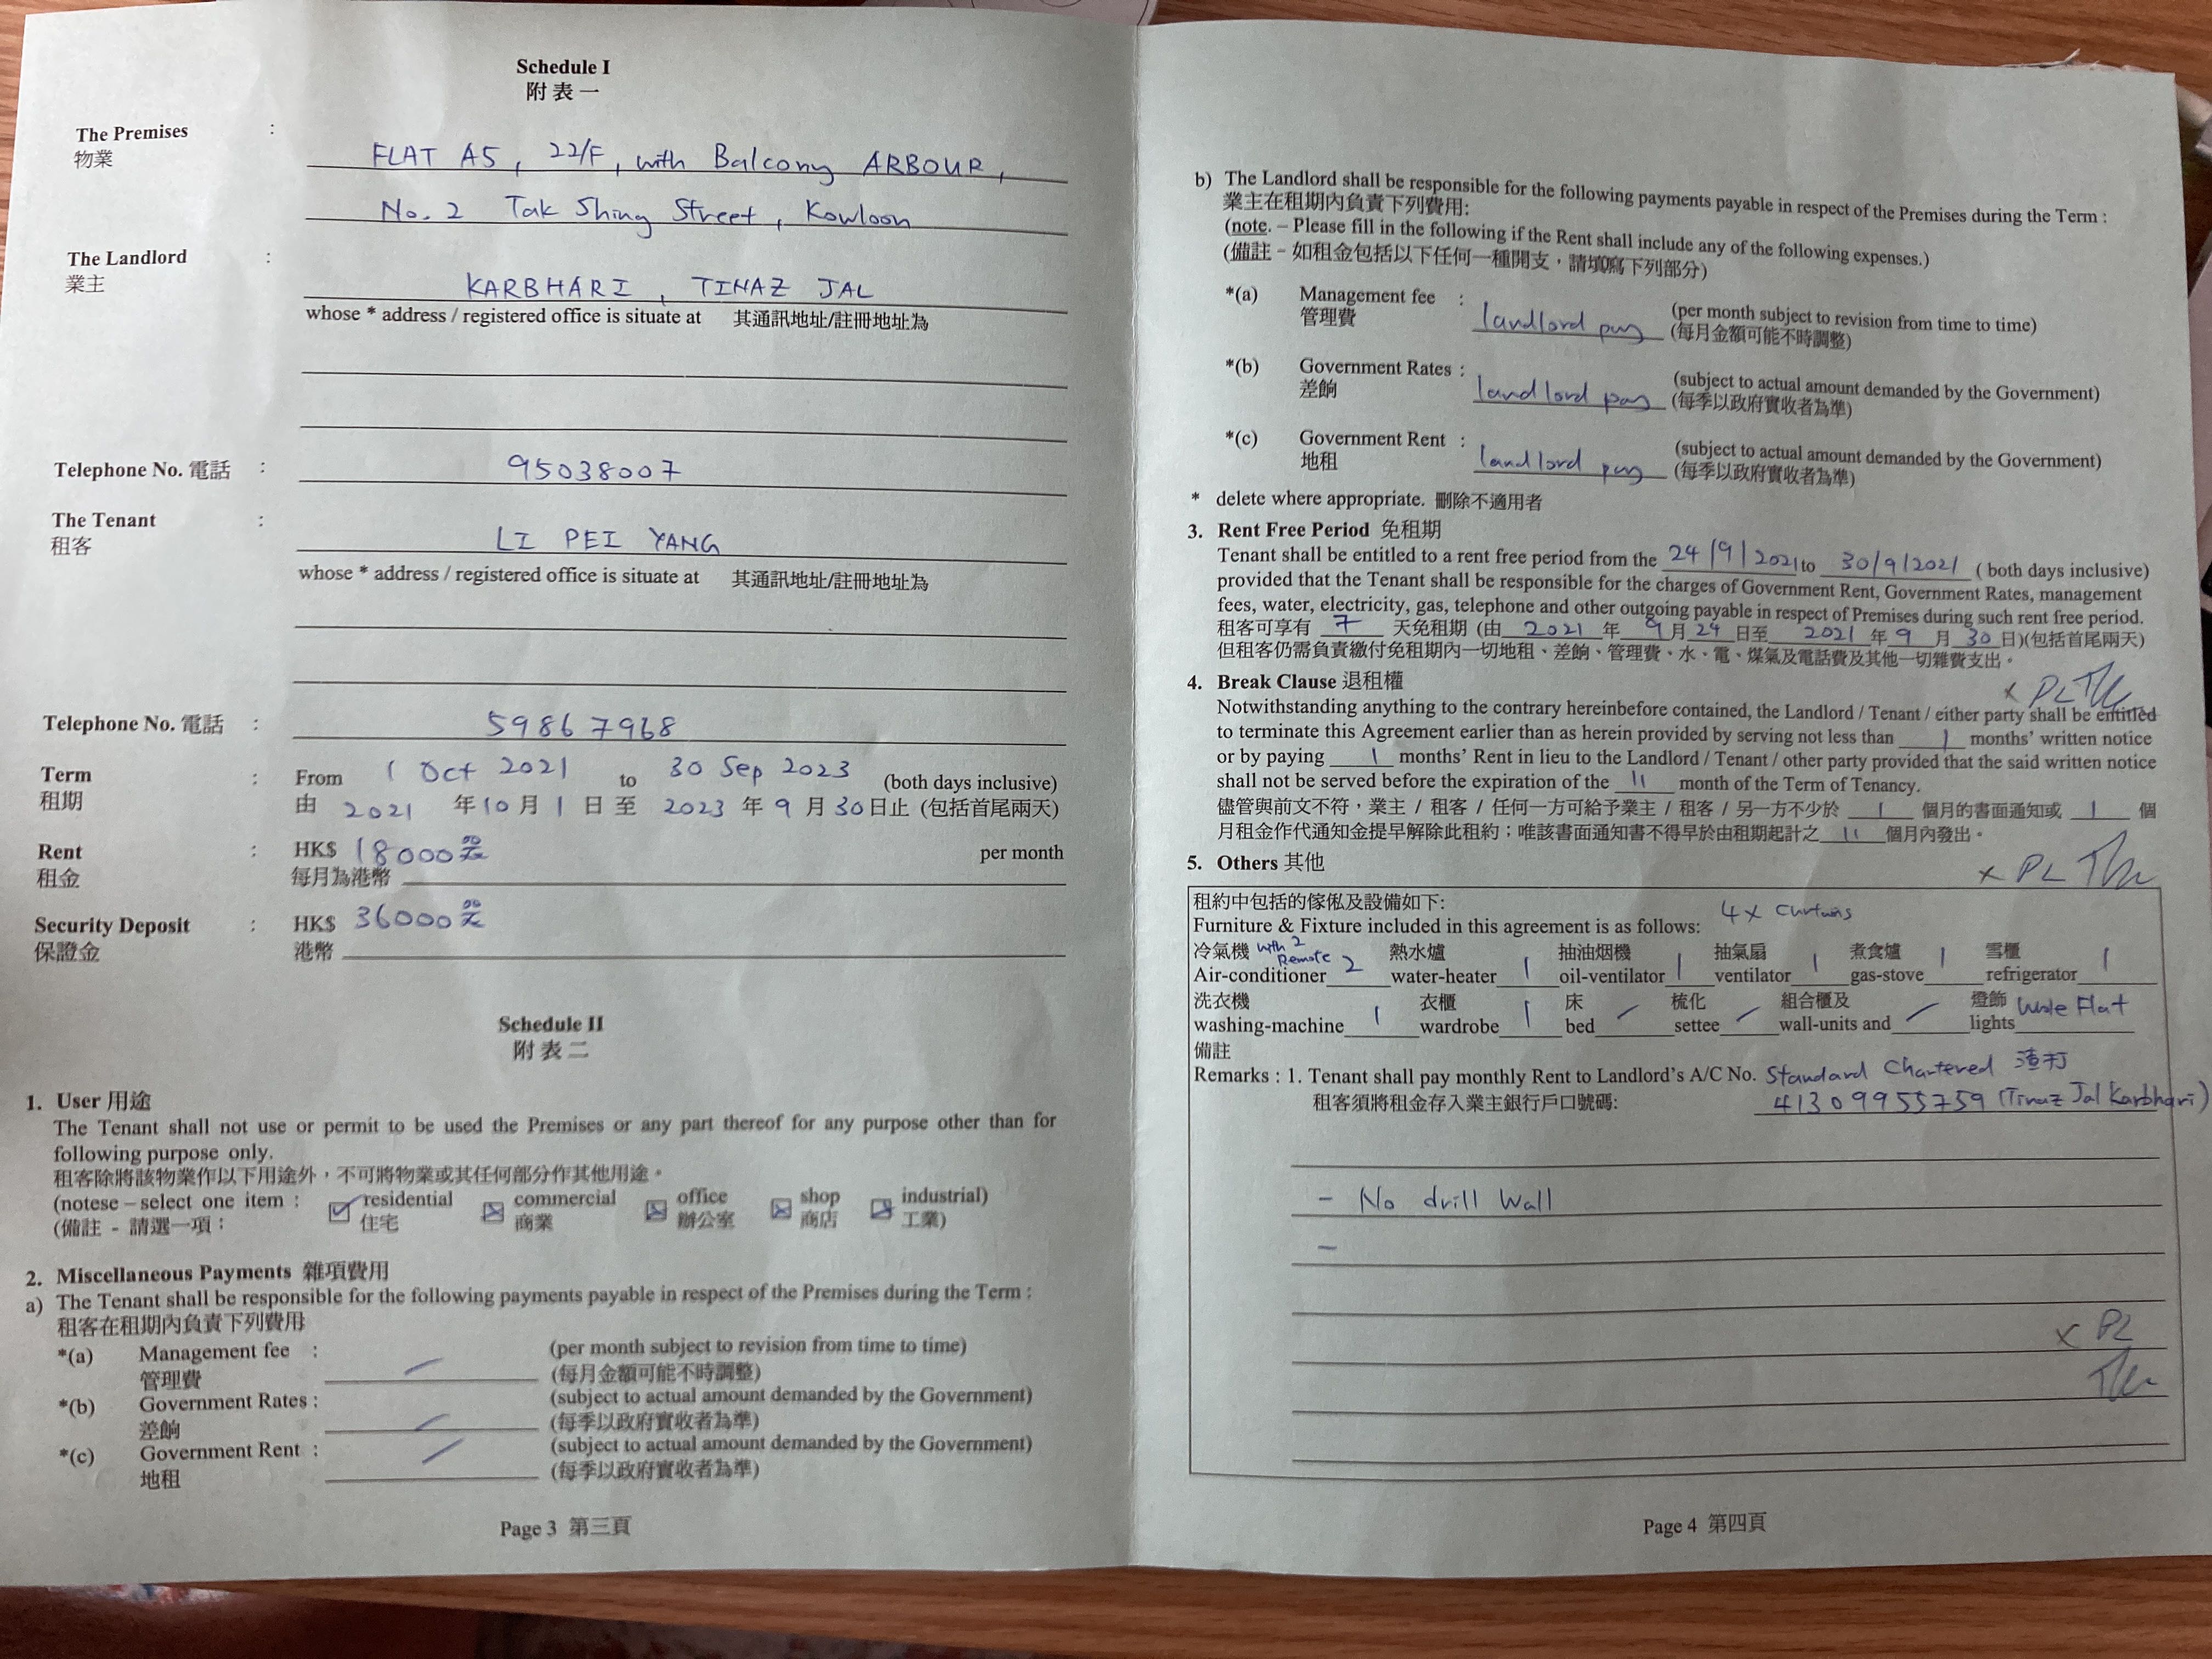 Schedule I
附表一
The Premises :
物業
FLAT A5, 22/F, with Balcony ARBOUR,
No. 2 Tak Shing Street, Kowloon
The Landlord :
業主
KARBHARI, TINAZ JAL
whose * address / registered office is situate at 其通訊地址/註冊地址為
Telephone No. 電話 : 95038007
The Tenant :
租客
LI PEI YANG
whose * address / registered office is situate at 其通訊地址/註冊地址為
Telephone No. 電話 : 59867968
Term : From 1 Oct 2021 to 30 Sep 2023 (both days inclusive)
租期 由 2021 年 10 月 1 日 至 2023 年 9 月 30 日止 (包括首尾兩天)
Rent : HK$ 18000 per month
租金 每月為港幣
Security Deposit : HK$ 36000
保證金 港幣
Schedule II
附表二
1. User 用途
The Tenant shall not use or permit to be used the Premises or any part thereof for any purpose other than for
following purpose only.
租客除將該物業作以下用途外，不可將物業或其任何部分作其他用途。
(notese – select one item : residential commercial office shop industrial)
(備註 - 請選一項： 住宅 商業 辦公室 商店 工業)
2. Miscellaneous Payments 雜項費用
a) The Tenant shall be responsible for the following payments payable in respect of the Premises during the Term :
租客在租期內負責下列費用
*(a) Management fee : (per month subject to revision from time to time)
管理費 (每月金額可能不時調整)
*(b) Government Rates : (subject to actual amount demanded by the Government)
差餉 (每季以政府實收者為準)
*(c) Government Rent : (subject to actual amount demanded by the Government)
地租 (每季以政府實收者為準)
Page 3 第三頁
b) The Landlord shall be responsible for the following payments payable in respect of the Premises during the Term :
業主在租期內負責下列費用:
(note. – Please fill in the following if the Rent shall include any of the following expenses.)
(備註 - 如租金包括以下任何一種開支，請填寫下列部分)
*(a) Management fee : landlord pay (per month subject to revision from time to time)
管理費 (每月金額可能不時調整)
*(b) Government Rates : landlord pay (subject to actual amount demanded by the Government)
差餉 (每季以政府實收者為準)
*(c) Government Rent : landlord pay (subject to actual amount demanded by the Government)
地租 (每季以政府實收者為準)
* delete where appropriate. 刪除不適用者
3. Rent Free Period 免租期
Tenant shall be entitled to a rent free period from the 24/9/2021 to 30/9/2021 ( both days inclusive)
provided that the Tenant shall be responsible for the charges of Government Rent, Government Rates, management
fees, water, electricity, gas, telephone and other outgoing payable in respect of Premises during such rent free period.
租客可享有 7 天免租期 (由 2021 年 9 月 24 日至 2021 年 9 月 30 日)(包括首尾兩天)
但租客仍需負責繳付免租期內一切地租、差餉、管理費、水、電、煤氣及電話費及其他一切雜費支出。
4. Break Clause 退租權
x PL
Notwithstanding anything to the contrary hereinbefore contained, the Landlord / Tenant / either party shall be entitled
to terminate this Agreement earlier than as herein provided by serving not less than 1 months' written notice
or by paying 1 months' Rent in lieu to the Landlord / Tenant / other party provided that the said written notice
shall not be served before the expiration of the 11 month of the Term of Tenancy.
儘管與前文不符，業主 / 租客 / 任何一方可給予業主 / 租客 / 另一方不少於 1 個月的書面通知或 1 個
月租金作代通知金提早解除此租約；唯該書面通知書不得早於由租期起計之 11 個月內發出。
5. Others 其他
x PL
租約中包括的傢俬及設備如下:
Furniture & Fixture included in this agreement is as follows: 4x Curtains
冷氣機 with 2 Remote 熱水爐 抽油烟機 抽氣扇 煮食爐 雪櫃
Air-conditioner 2 water-heater 1 oil-ventilator 1 ventilator 1 gas-stove 1 refrigerator 1
洗衣機 衣櫃 床 梳化 組合櫃及 燈飾
washing-machine 1 wardrobe 1 bed settee wall-units and lights Whole Flat
備註
Remarks : 1. Tenant shall pay monthly Rent to Landlord's A/C No. Standard Chartered 渣打
租客須將租金存入業主銀行戶口號碼: 41309955759 (Tinaz Jal Karbhari)
- No drill Wall
-
x PL
Page 4 第四頁